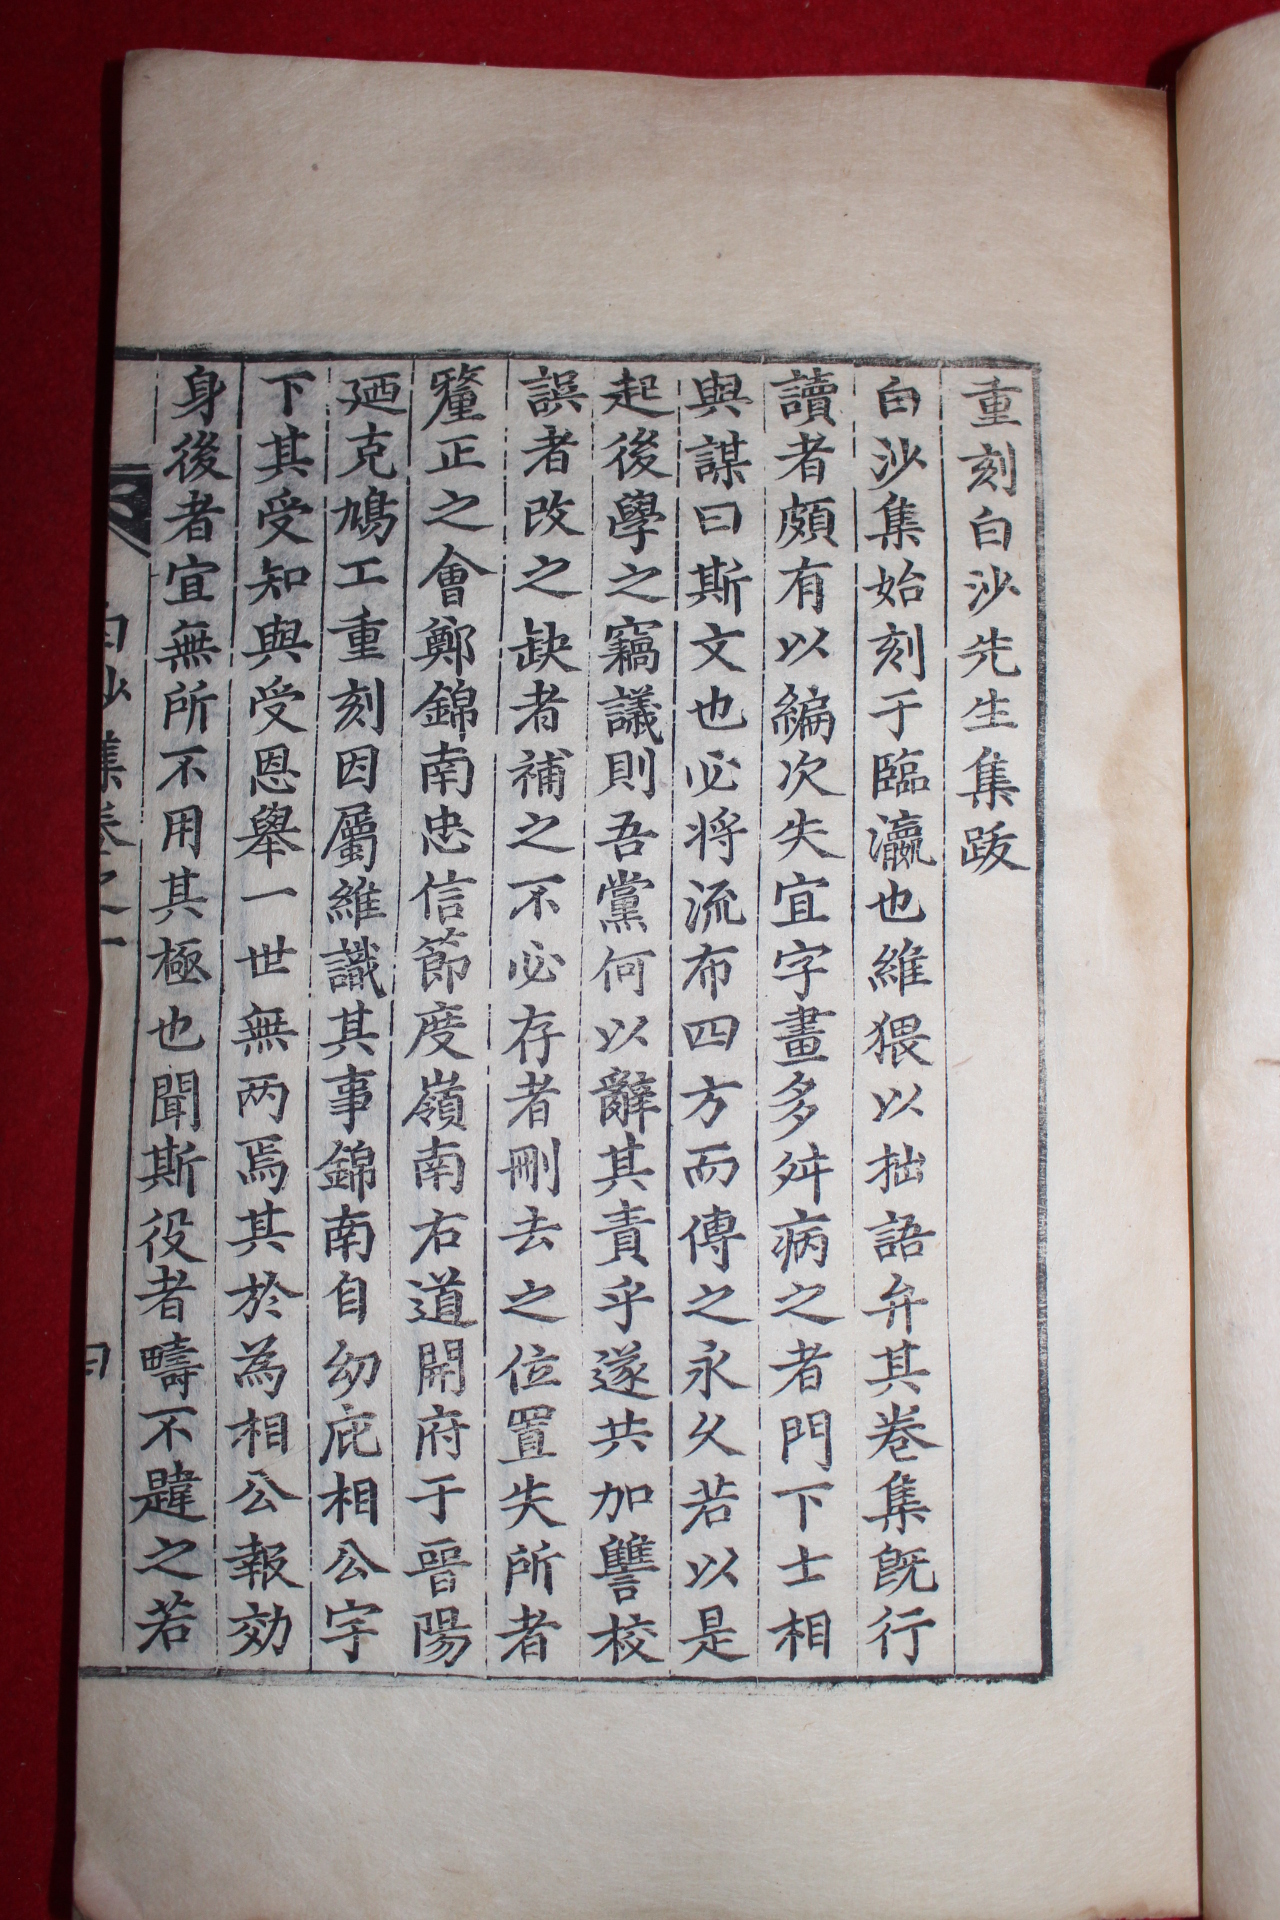 重刻白沙先生集跋
白沙集始刻于臨瀛也維猥以拙語弁其卷集旣行
讀者頗有以編次失宜字畫多舛病之者門下士相
與謀曰斯文也必將流布四方而傳之永久若以是
起後學之竊議則吾黨何以辭其責乎遂共加讐校
誤者改之缺者補之不必存者刪去之位置失所者
釐正之會鄭錦南忠信節度嶺南右道開府于晉陽
廼克鳩工重刻因屬維識其事錦南自幼庇相公宇
下其受知與受恩舉一世無兩焉其於為相公報効
身後者宜無所不用其極也聞斯役者疇不韙之若
白沙集卷之一